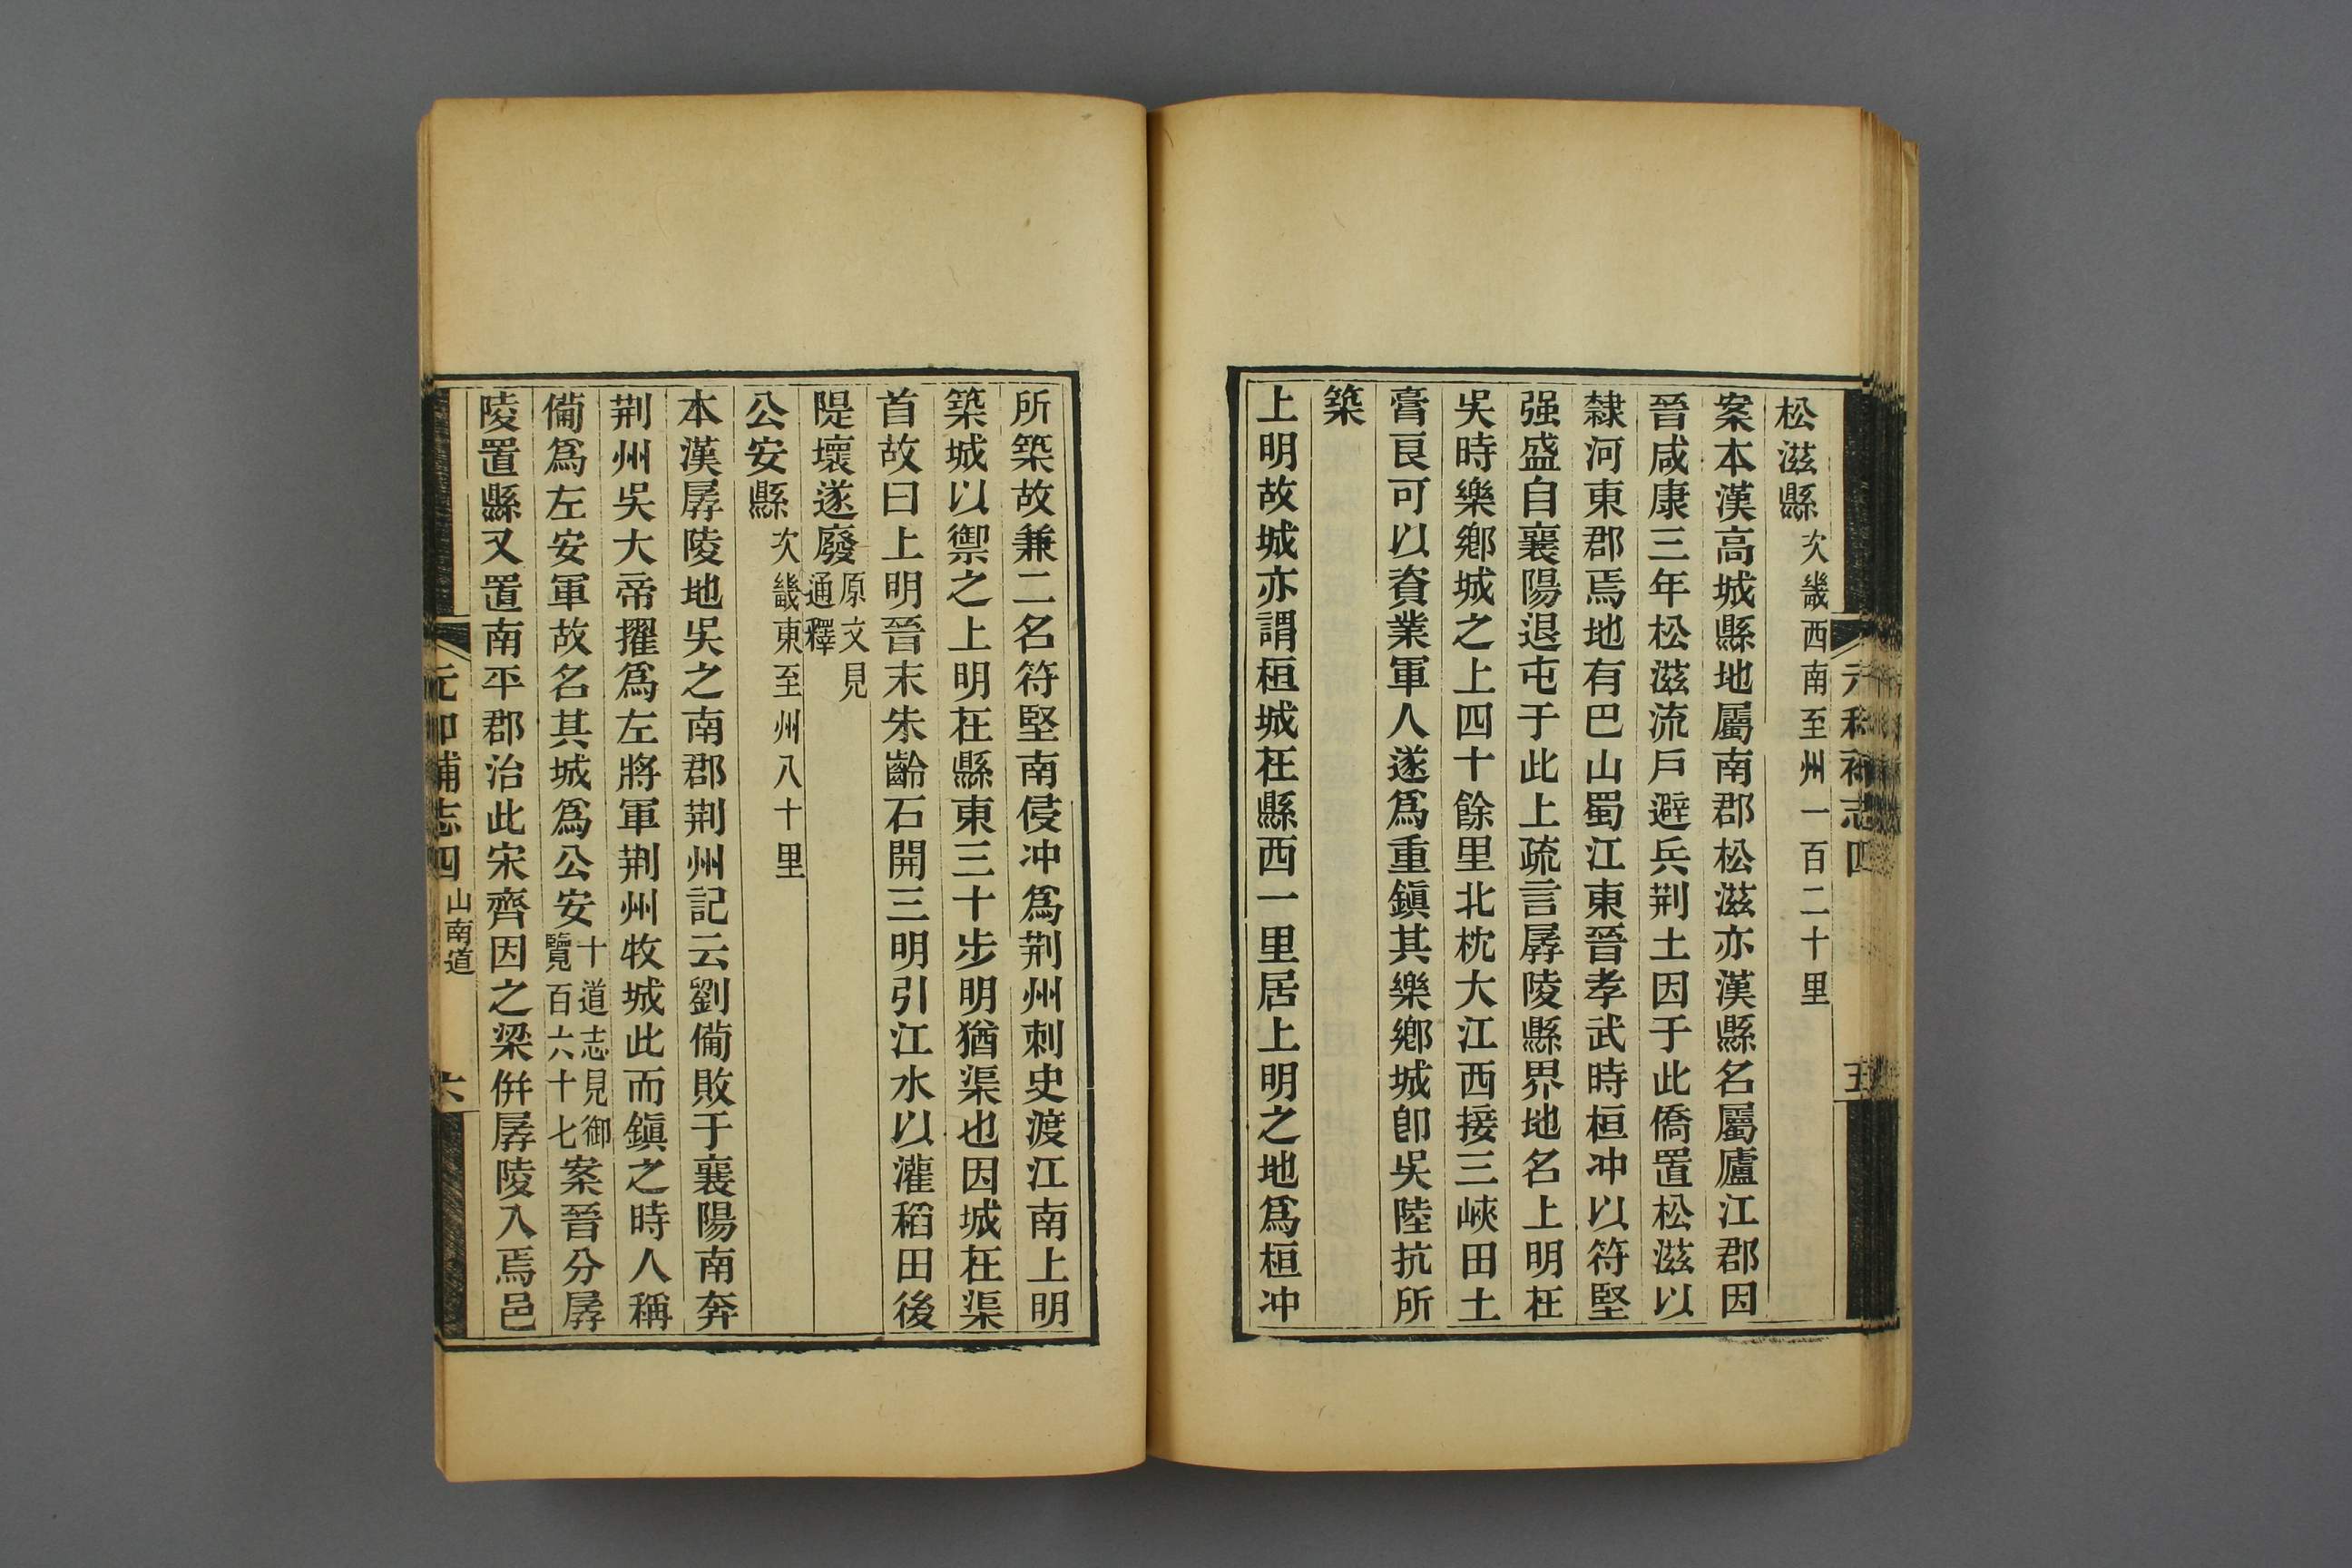 松滋縣次畿西南至州一百二十里
案本漢高城縣地屬南郡松滋亦漢縣名屬廬江郡因
晉咸康三年松滋流戶避兵荆土因于此僑置松滋以
隸河東郡焉地有巴山蜀江東晉孝武時桓冲以符堅
强盛自襄陽退屯于此上疏言孱陵縣界地名上明在
吳時樂鄉城之上四十餘里北枕大江西接三峽田土
膏良可以資業軍人遂爲重鎭其樂鄉城卽吳陸抗所
築
上明故城亦謂桓城在縣西一里居上明之地爲桓冲
所築故兼二名符堅南侵冲爲荆州刺史渡江南上明
築城以禦之上明在縣東三十步明猶渠也因城在渠
首故曰上明晉末朱齡石開三明引江水以灌稻田後
隄壞遂廢原文見通釋
公安縣次畿東至州八十里
本漢孱陵地吳之南郡荆州記云劉備敗于襄陽南奔
荆州吳大帝擢爲左將軍荆州牧城此而鎭之時人稱
備爲左安軍故名其城爲公安十道志見御覽百六十七案晉分孱
陵置縣又置南平郡治此宋齊因之梁併孱陵入焉邑
元和補志四 山南道 六